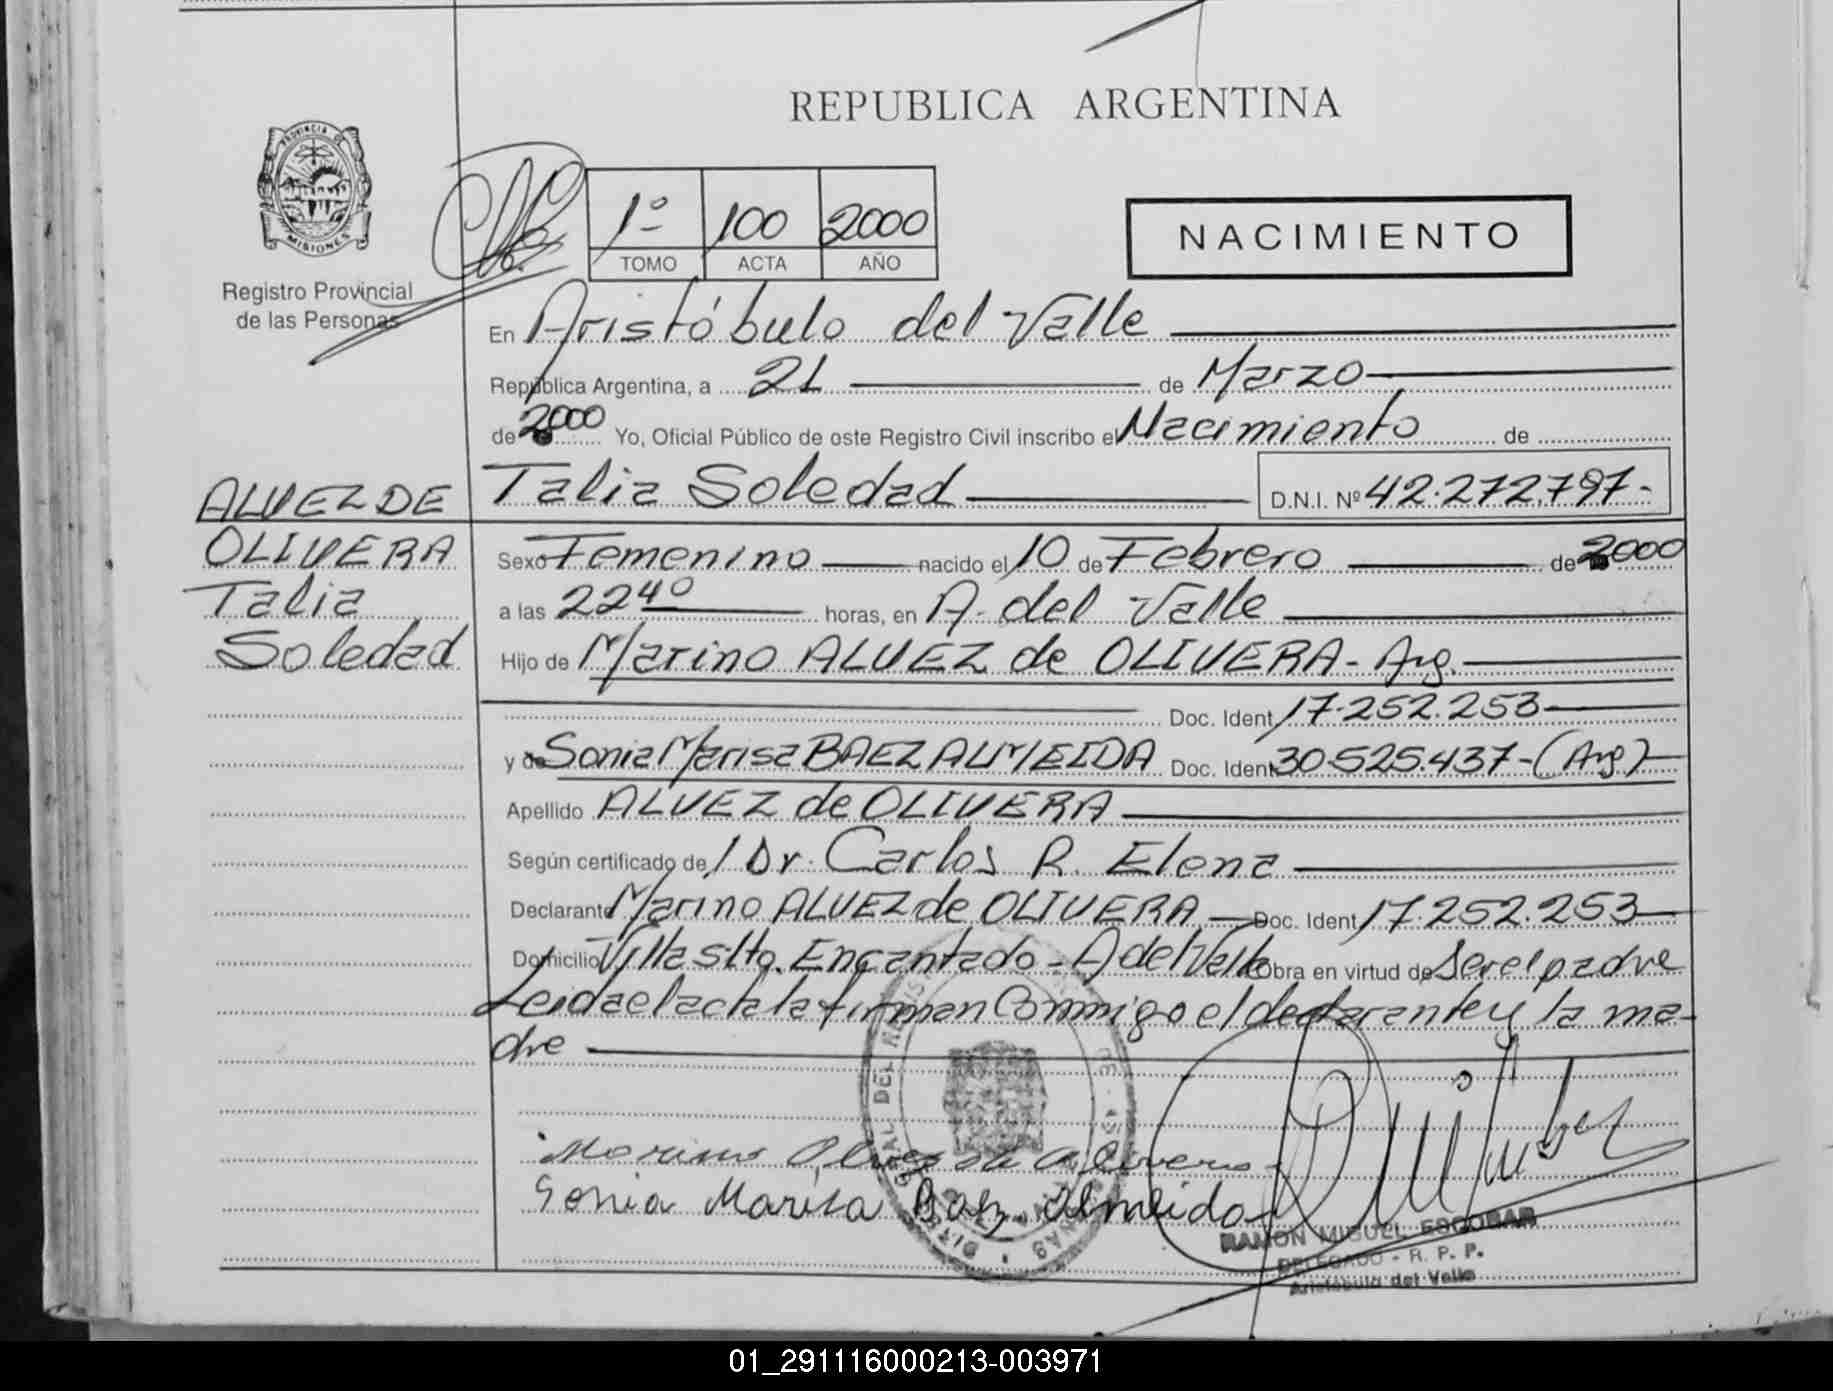 REPUBLICA ARGENTINA
PROVINCIA DE
MISIONES
Registro Provincial
de las Personas
1º 100 2000
TOMO ACTA AÑO
NACIMIENTO
En Aristóbulo del Valle
República Argentina, a 21 de Marzo
de 2000 Yo, Oficial Público de este Registro Civil inscribo el Nacimiento de
Talia Soledad D.N.I. Nº 42.272.797.-
ALVEZ DE
OLIVERA
Talia
Soledad
Sexo Femenino nacido el 10 de Febrero de 2000
a las 22 40 horas, en A. del Valle
Hijo de Marino ALVEZ de OLIVERA - Arg.
Doc. Ident. 17.252.253
y de Sonia Marisa BAEZ ALMEIDA Doc. Ident. 30.525.437 - (Arg)
Apellido ALVEZ de OLIVERA
Según certificado de Dr. Carlos R. Elena
Declarante Marino ALVEZ de OLIVERA Doc. Ident. 17.252.253
Domicilio Villa slto. Encantado - A del Valle Obra en virtud de Ser el padre
Leida el acta la firman Conmigo el declarante y la ma-
dre
Marino Alvez de Olivera
Sonia Marisa Baez Almeida
RAMON MIGUEL ESCOBAR
DELEGADO - R. P. P.
Aristóbulo del Valle
01_291116000213-003971